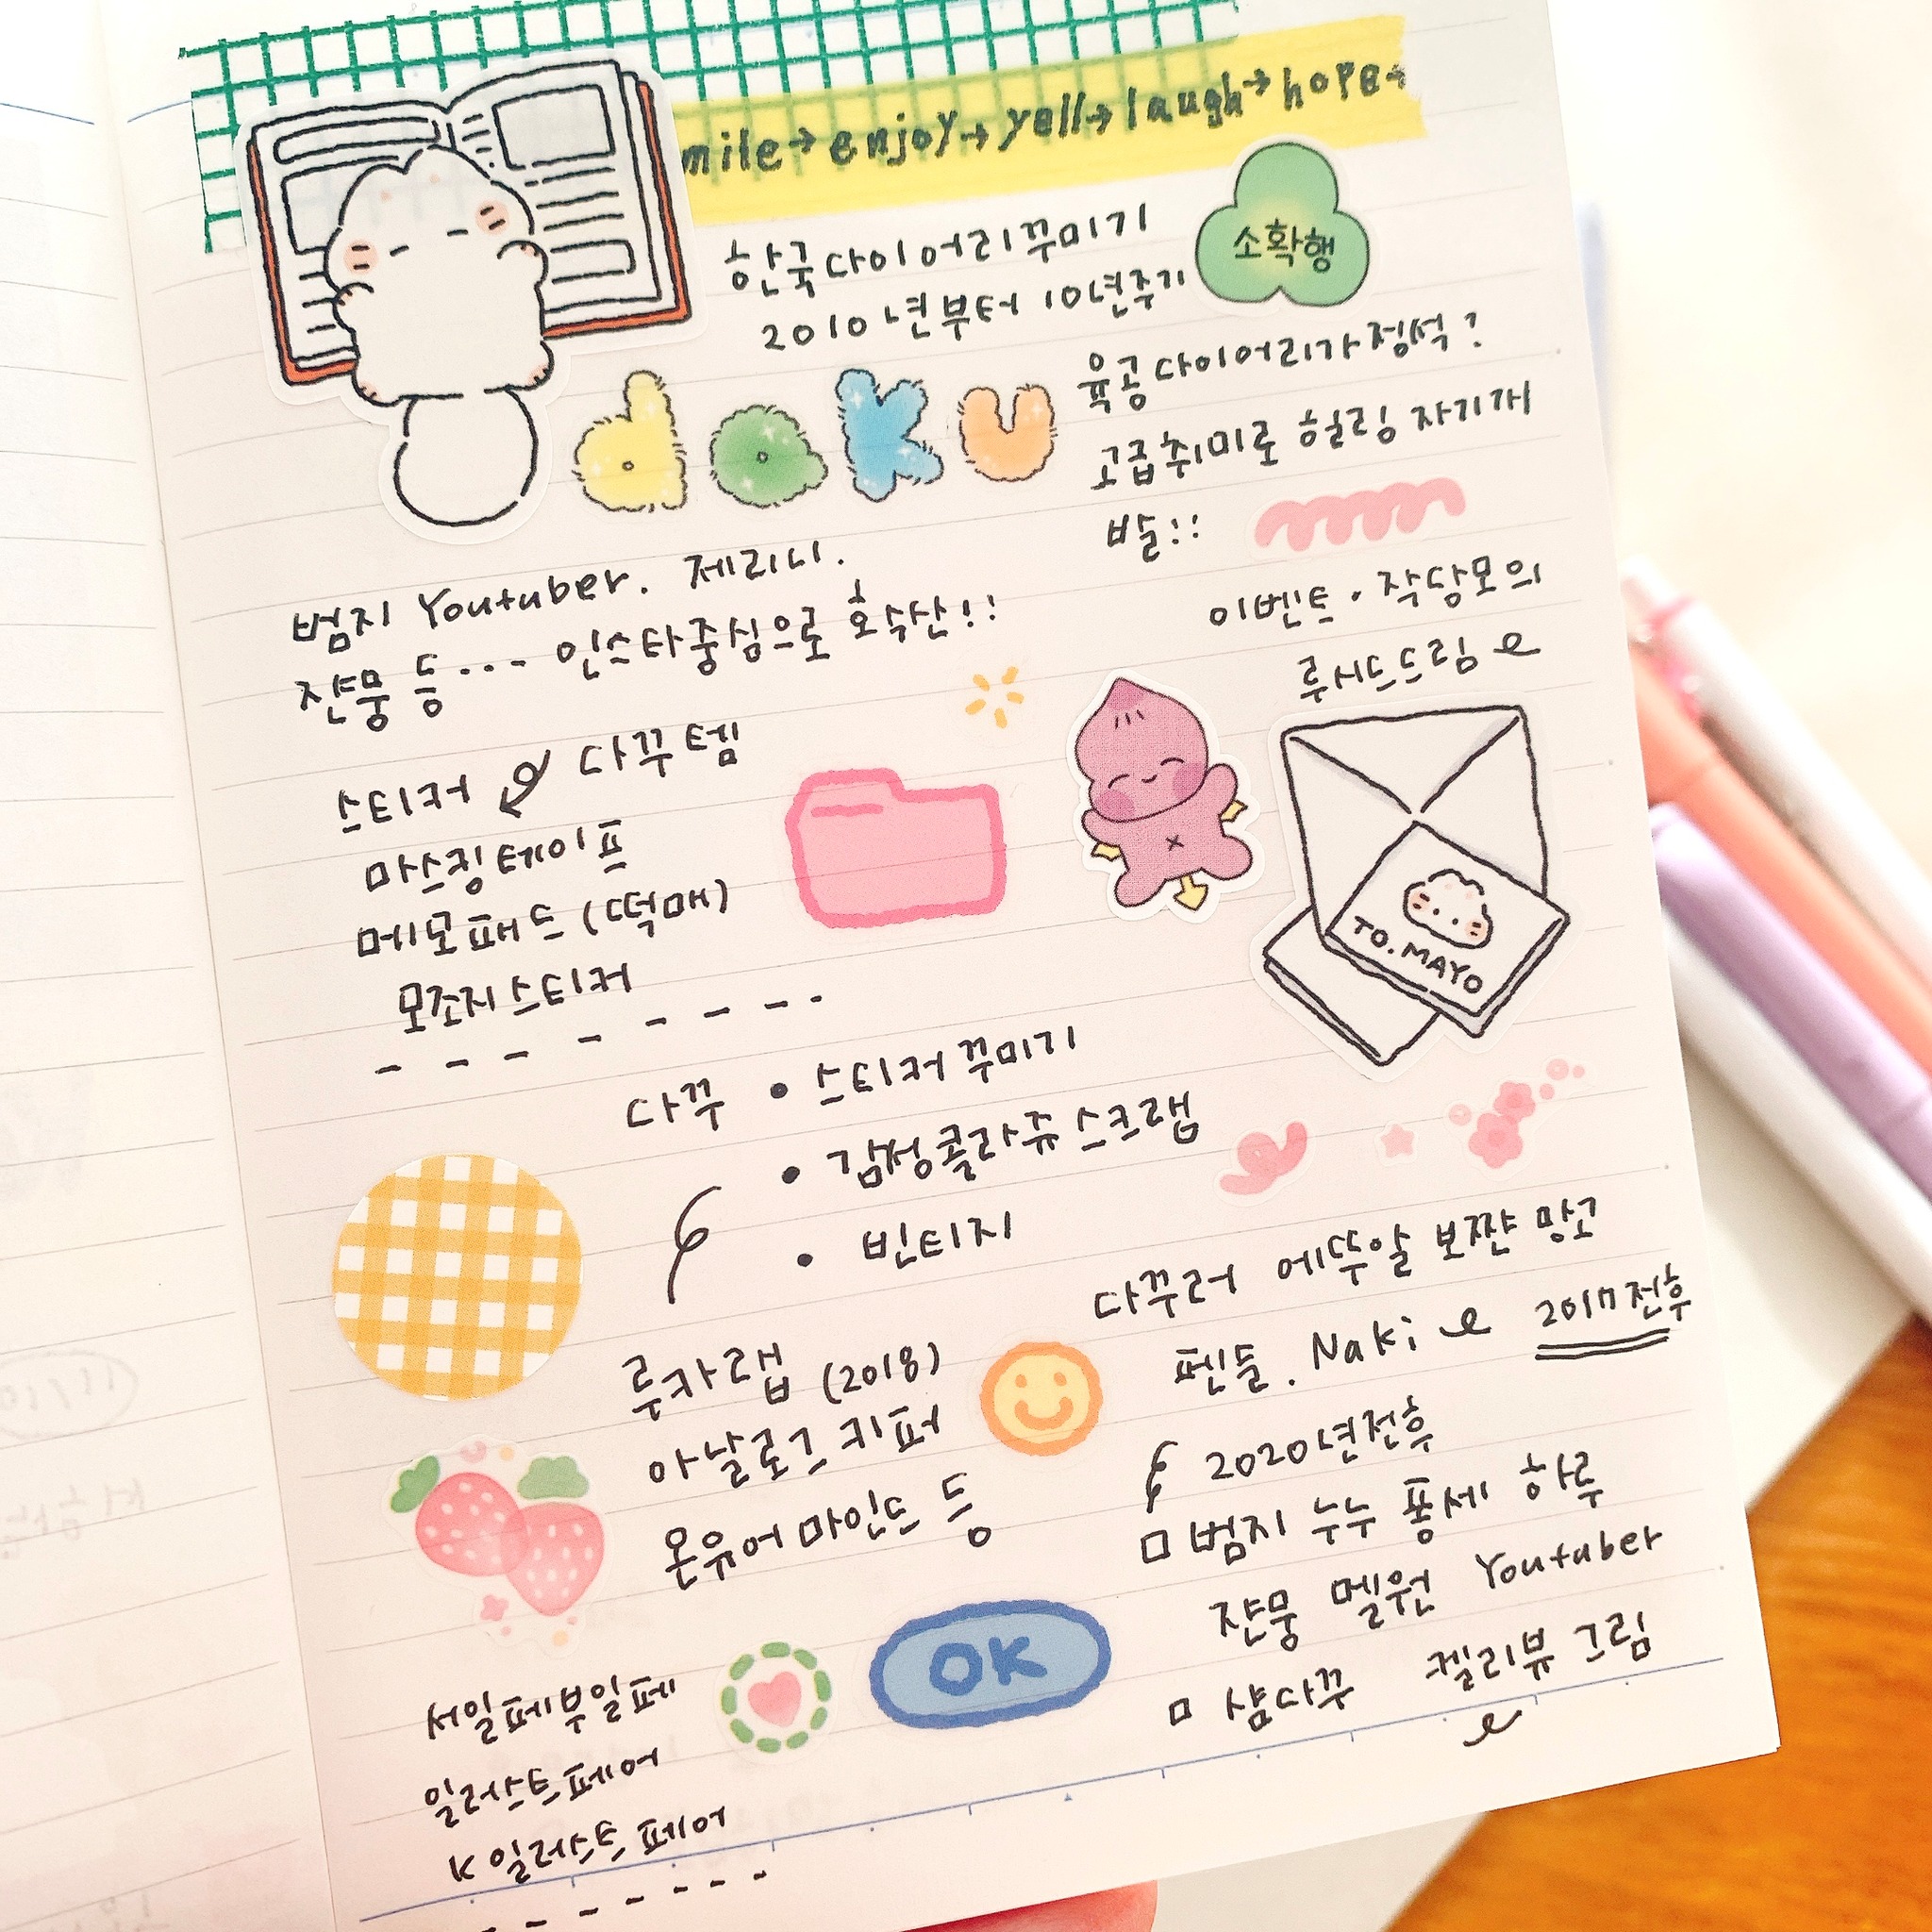 mile→enjoy→yell→laugh→hope→
한국다이어리꾸미기
2010년부터 10년주기
소확행
daku
육공다이어리가정석?
고급취미로 힐링 자기개
발!!
범지 Youtuber. 제리니.
쟌뭉 등... 인스타중심으로 확산!!
이벤트·작당모의
루시드드림
스티커 다꾸템
마스킹테이프
메모패드(떡메)
모조지스티커
TO.MAYO
다꾸 • 스티커꾸미기
• 감성콜라쥬스크랩
• 빈티지
다꾸러 에뚜알 보쨘 망고
펜둘. Naki 2017전후
루카랩 (2018)
아날로그 키퍼
온유어마인드 등
2020년전후
범지 누누 퐁세 하루
쟌뭉 멜원 Youtuber
샴다꾸 켈리뷰 그림
OK
서일페부일페
일러스트페어
K일러스트페어